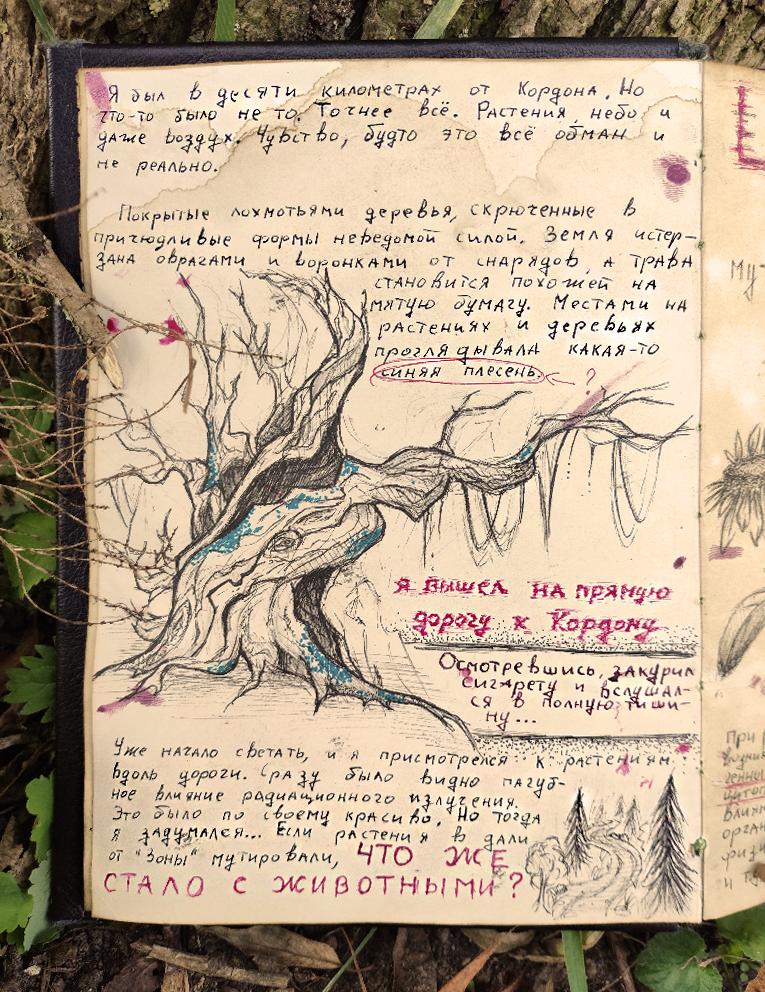 Я был в десяти километрах от Кордона. Но
что-то было не то. Точнее всё. Растения, небо и
даже воздух. Чувство, будто это всё обман и
не реально.
Покрытые лохмотьями деревья, скрюченные в
причюдливые формы неведомой силой. Земля истер-
зана оврагами и воронками от снарядов, а трава
становится похожей на
мятую бумагу. Местами на
растениях и деревьях
проглядывала какая-то
синяя плесень. ?
я вышел на прямую
дорогу к Кордону
Осмотревшись, закурил
сигарету и вслушал-
ся в полную тиши-
ну...
Уже начало светать, и я присмотрелся к растениям
вдоль дороги. Сразу было видно пагуб-
ное влияние радиационного излучения.
Это было по своему красиво. Но тогда
я задумался... Если растения в дали
от "Зоны" мутировали, ЧТО ЖЕ
СТАЛО С ЖИВОТНЫМИ?
Му
При
влия
орган
физ
и